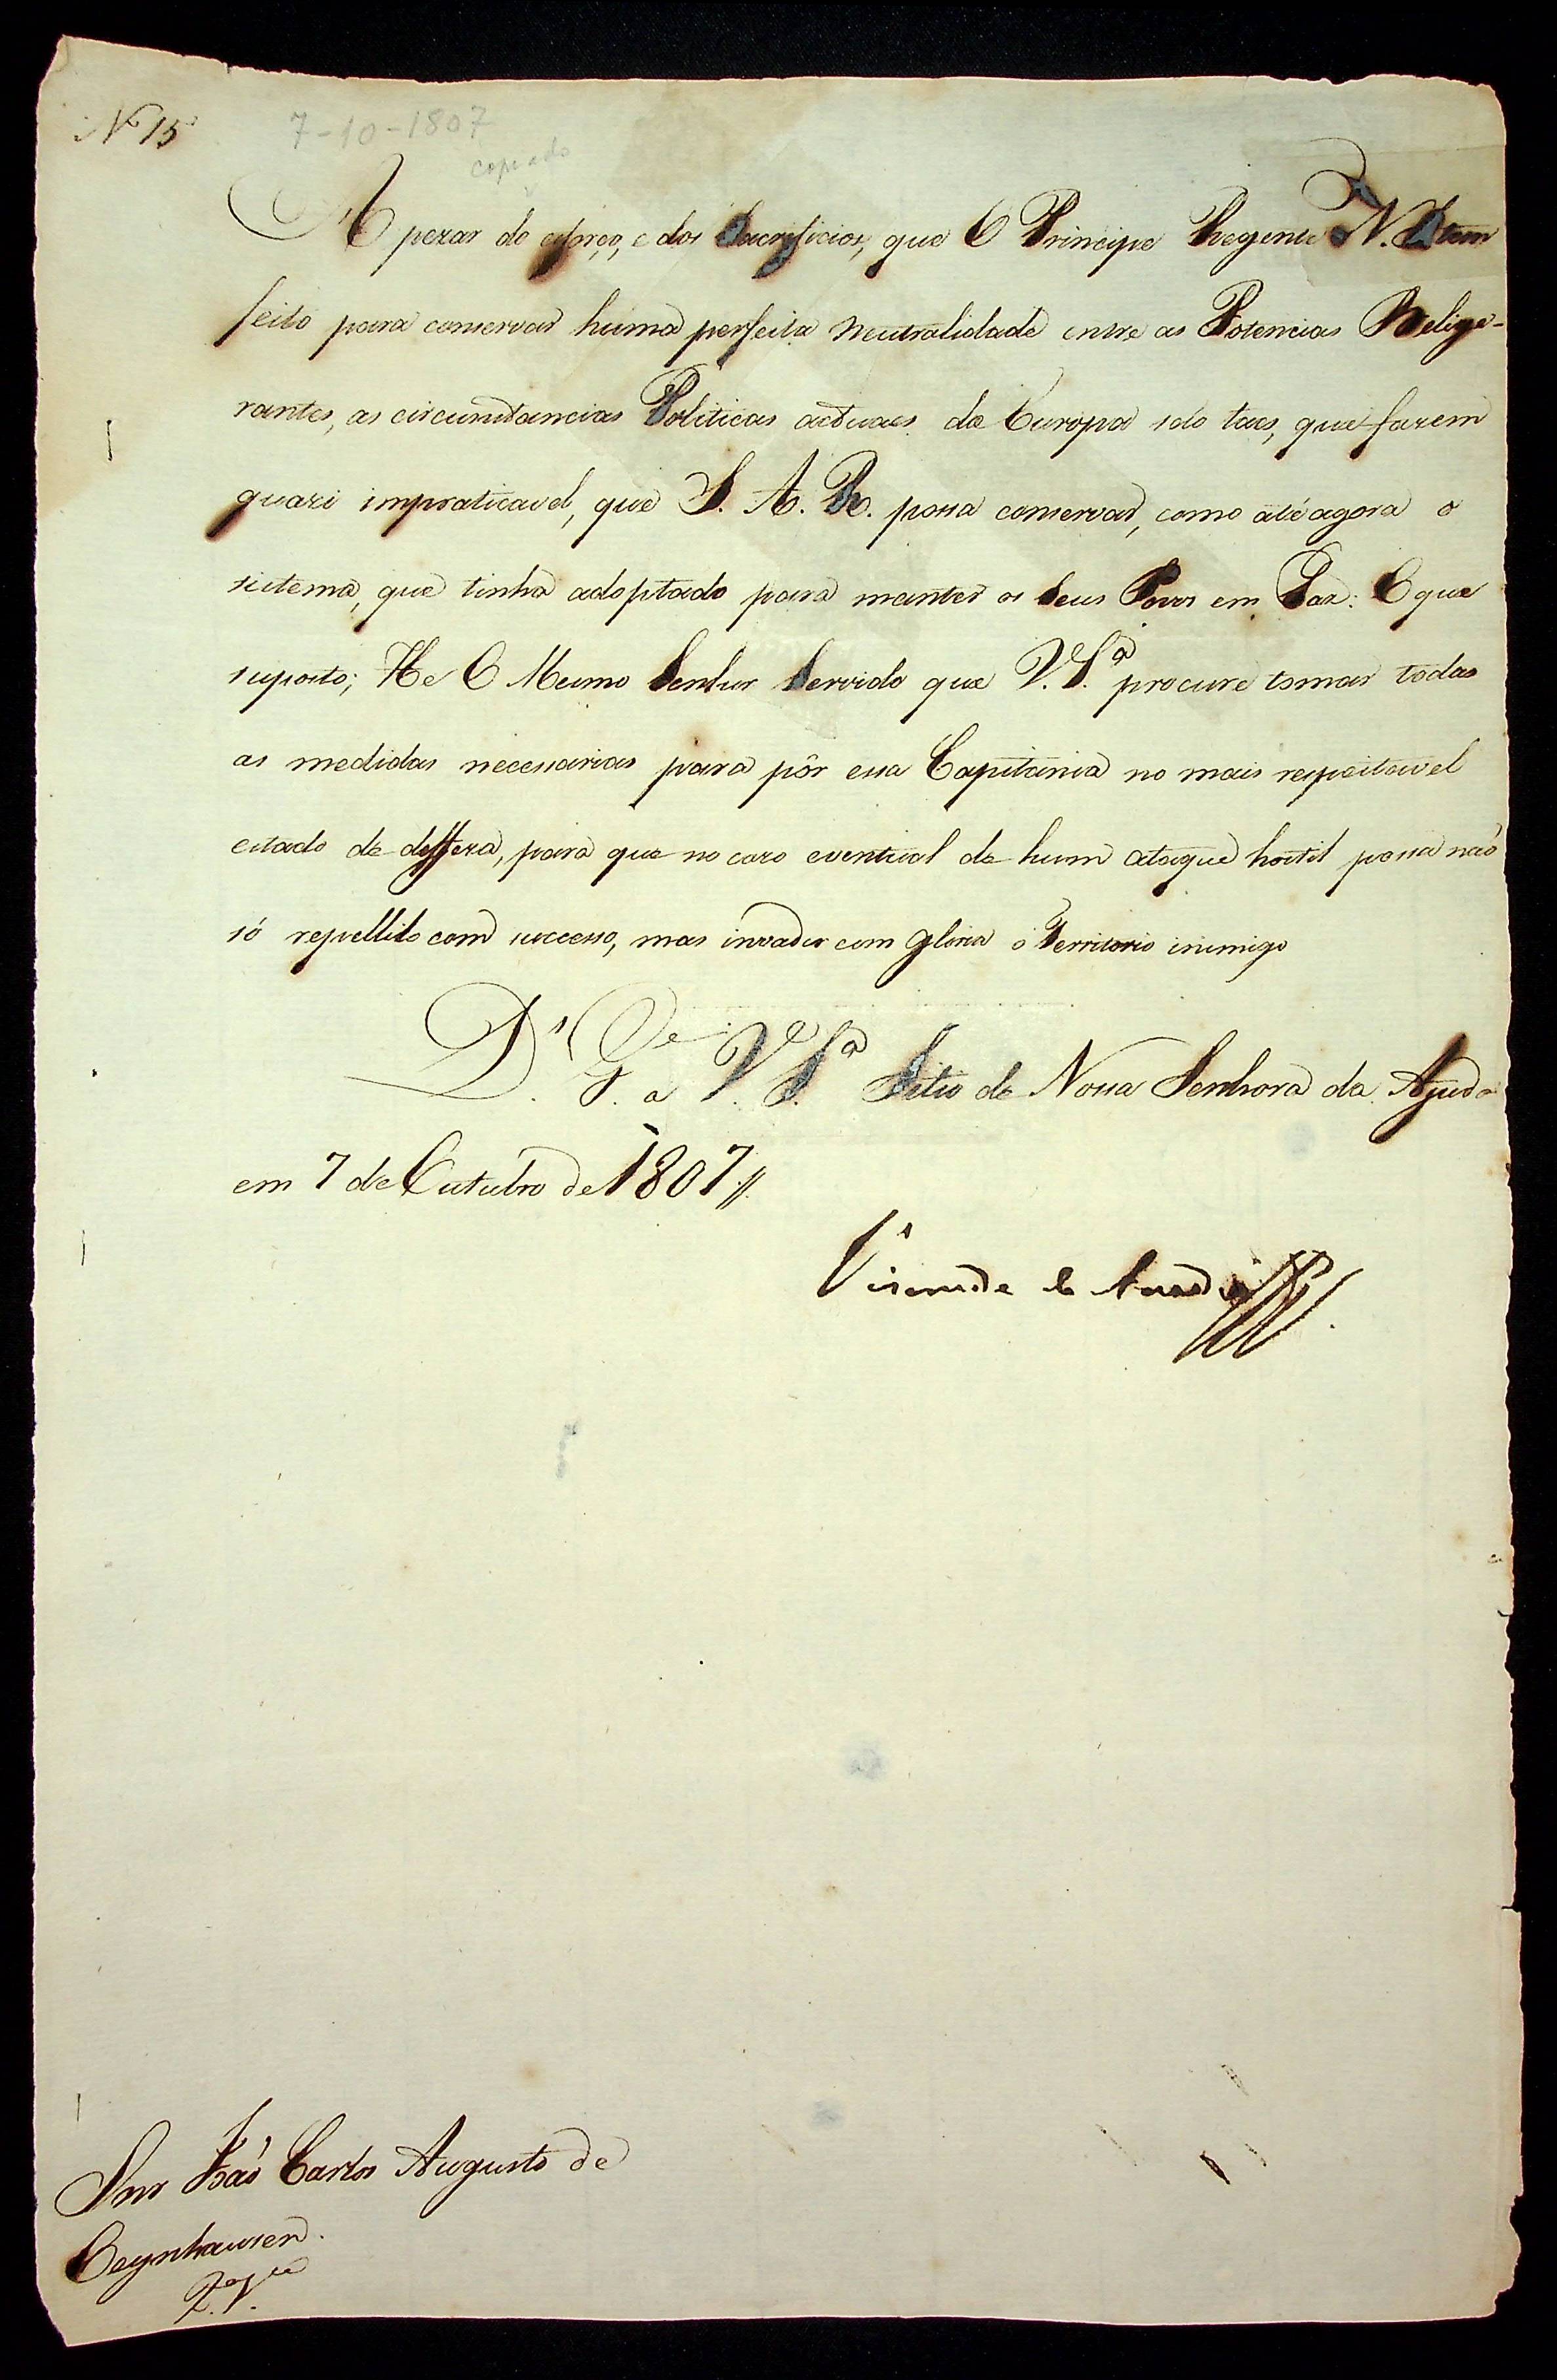 N 15
7-10-1807
copiado
A pezar do esforço, e dos Sacrificios, que O Principe Regente N. S. tem
feito para conservar huma perfeita Neutralidade entre as Potencias Belige-
rantes, as circunstancias Politicas actuaes da Europa são taes, que fazem
quazi impraticavel, que S. A. R. possa conservar, como até agora o
sistema, que tinha adoptado para manter os Seus Povos em Paz: O que
suposto; He O Mesmo Senhor Servido que V. S.ª procure tomar todas
as medidas necessarias para pôr essa Capitania no mais respeitavel
estado de deffeza, para que no cazo eventual de hum ataque hostil possa não
só repellilo com successo, mas invadir com gloria o Territorio inimigo
D.s G.e a V. S.ª Sitio de Nossa Senhora da Ajuda
em 7 de Outubro de 1807 //.
Visconde de Anadia
Snr João Carlos Augusto de
Oeynhausen.